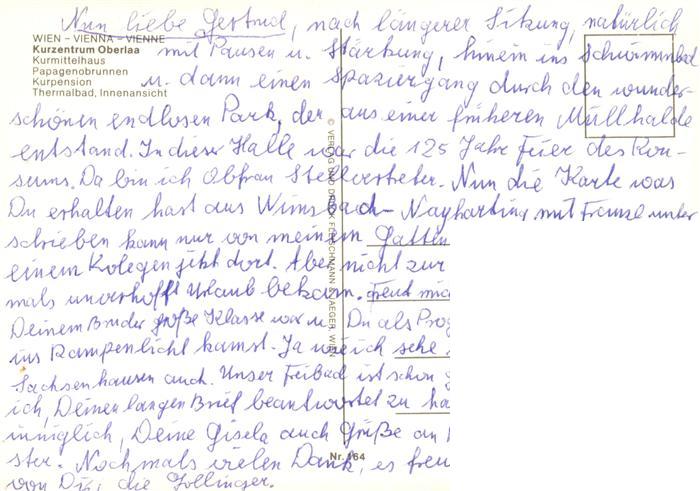 Nun liebe Gertrud, nach längerer Sitzung, natürlich
WIEN – VIENNA – VIENNE
Kurzentrum Oberlaa
Kurmittelhaus
Papagenobrunnen
Kurpension
Thermalbad, Innenansicht
mit Pausen u. Stärkung, hinein ins Schwimmbad
u. dann einen Spaziergang durch den wunder-
schönen endlosen Park, der aus einer früheren Müllhalde
entstand. In dieser Halle war die 125 Jahr Feier des Kon-
sums. Da bin ich Obfrau Stellvertreter. Nun die Karte was
Du erhalten hast aus Wimsbach-Neyharting mit Franzl unter
schrieben kann nur von meinem Gatten
einem Kolegen jetzt dort. Aber nicht zur
mals unverhofft Urlaub bekam. Freut mich
Deinem Bruder große Klasse war u. Du als Pro
ins Rampenlicht kamst. Ja wie ich sehe
Sachsenhausen auch. Unser Freibad ist schon
ich, Deinen langen Brief beantwortet zu ha
inniglich, Deine Gisela auch Grüße an
ster. Nochmals vielen Dank, es freu
von Dir, die Zollinger.
© VERLAG UND DRUCK FLEISCHMANN & JAEGER, WIEN
Nr. 164